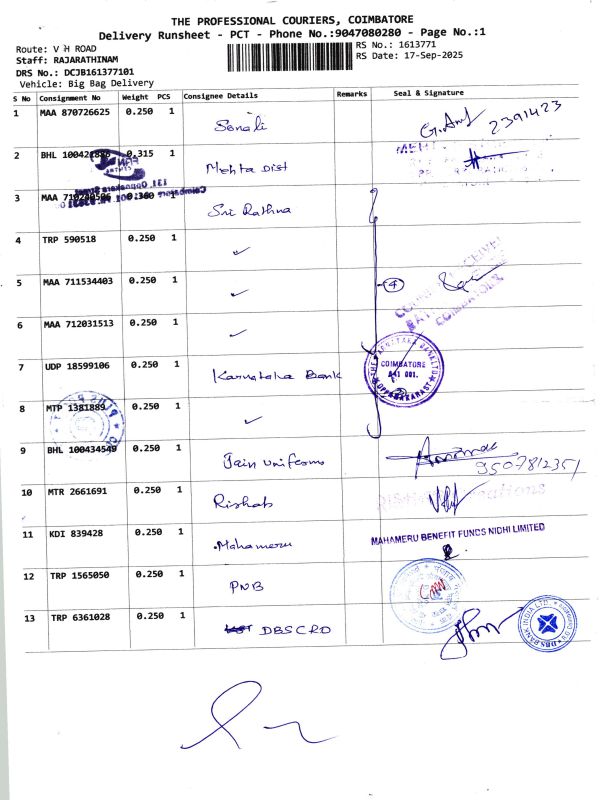 THE PROFESSIONAL COURIERS, COIMBATORE
Delivery Runsheet - PCT - Phone No.:9047080280 - Page No.:1
Route: V H ROAD
RS No.: 1613771
Staff: RAJARATHINAM
RS Date: 17-Sep-2025
DRS No.: DCJB161377101
Vehicle: Big Bag Delivery
S No Consignment No Weight PCS Consignee Details Remarks Seal & Signature
1 MAA 870726625 0.250 1 Sonali 2391423
2 BHL 0.315 1 Mehta Dist
3 MAA 1 Sri Rathna
4 TRP 590518 0.250 1 ✓
5 MAA 711534403 0.250 1 ✓ 4
6 MAA 712031513 0.250 1 ✓
COIMBATORE
7 UDP 18599106 0.250 1 Karnataka Bank
THE KARNATAKA BANK LTD
COIMBATORE
641 001.
8 MTP 1381889 0.250 1 ✓
9 BHL 100434549 0.250 1 Jain Uniforms
9507812351
10 MTR 2661691 0.250 1 Rishab
11 KDI 839428 0.250 1 Mahameru MAHAMERU BENEFIT FUNDS NIDHI LIMITED
12 TRP 1565050 0.250 1 PNB
13 TRP 6361028 0.250 1 DBS CRD
DBS BANK INDIA LTD.